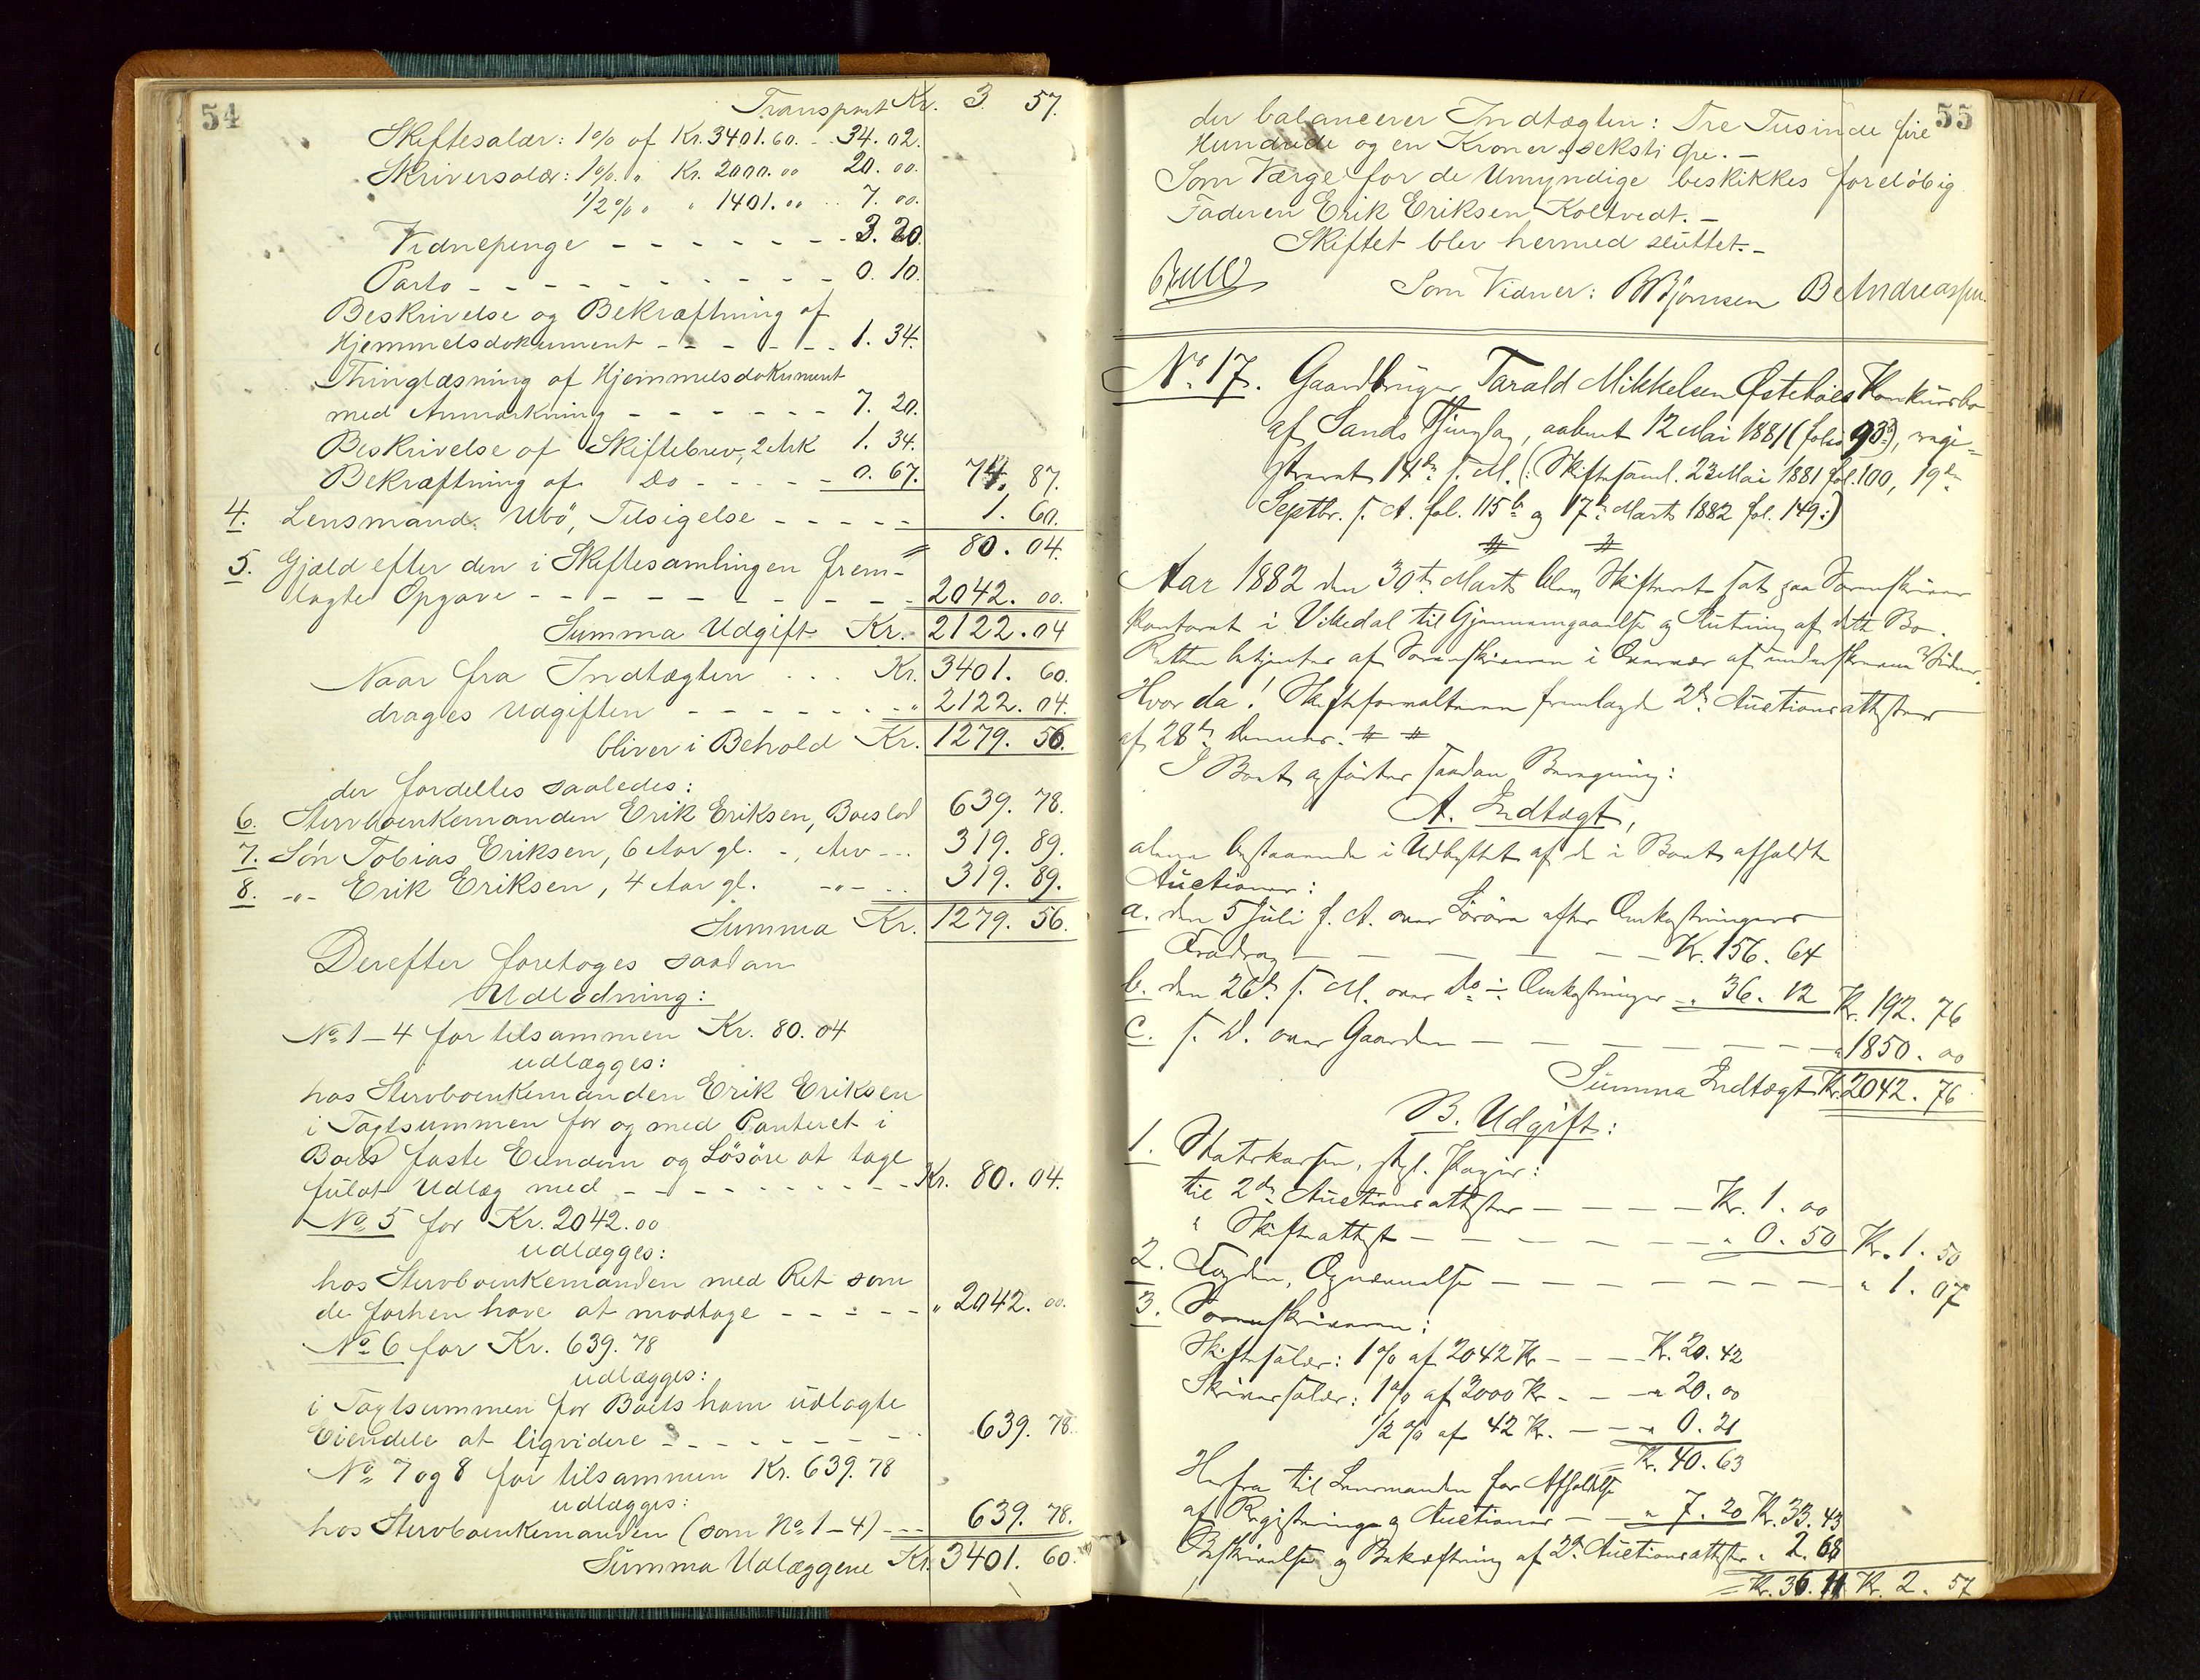 54
Transport Kr. 3. 57.
Skiftesalær: 1% of Kr. 3401.60. - 34. 02.
Skriversalær: 1% " Kr. 2000.00 20. 00.
1/2% " " 1401.00 .. 7. 00.
Vidnepenge - - - - - - - 3. 20.
Porto - - - - - - - - - 0. 10.
Beskrivelse og Bekræftning af
Hjemmelsdokument - - - - - - 1. 34.
Thinglæsning af Hjemmelsdokument
med Anmærkning - - - - - - 7. 20.
Beskrivelse af Skiftebrev, 2 Ark 1. 34.
Bekræftning af Do - - - - - 0. 67. 74. 87.
4. Lensmand Ubö, Tilsigelse - - - - - 1. 60.
= 80. 04.
5. Gjæld efter den i Skiftesamlingen frem-
lagte Opgave - - - - - - - - - - 2042. 00.
Summa Udgift Kr. 2122. 04
Naar fra Indtægten . . . Kr. 3401. 60.
drages Udgiften - - - - - - - " 2122. 04.
bliver i Behold Kr. 1279. 56.
der fordeltes saaledes:
6. Stervboenkemanden Erik Eriksen, Boeslod 639. 78.
7. Sön Tobias Eriksen, 6 Aar gl. -, Arv - .. 319. 89.
8. -"- Erik Eriksen, 4 Aar gl. -"- .. 319. 89.
Summa Kr. 1279. 56.
Derefter foretoges saadan
Udlodning:
No 1-4 for tilsammen Kr. 80. 04
udlægges:
hos Stervboenkemanden Erik Eriksen
i Taxtsummen for og med Panteret i
Boets faste Eiendom og Lösöre at tage
fuldt Udlæg med - - - - - - - - - Kr. 80. 04.
No 5 for Kr. 2042.00
udlægges:
hos Stervboenkemanden med Ret som
de forhen have at modtage - - - - - " 2042. 00.
No 6 for Kr. 639. 78
udlægges:
i Taxtsummen for Boets ham udlagte
Eiendele at liqvidere - - - - - - - - 639. 78.
No 7 og 8 for tilsammen Kr. 639. 78
udlægges:
hos Stervboenkemanden (som No 1-4) - - - 639. 78.
Summa Udlæggene Kr. 3401. 60.
55
der balancerer Indtægten: Tre Tusinde fire
Hundrede og en Kroner seksti Øre. -
Som Værge for de Umyndige beskikkes foreløbig
Faderen Erik Eriksen Koltvedt. -
Skiftet blev hermed sluttet. -
Som Vidner: BBjørnsen B Andreassen
No 17. Gaardbruger Tarald Mikkelsen Østebøes Konkursbo
af Sands Thinglag, aabnet 12 Mai 1881 (folio 93b), regi-
streret 14de s. M. (: Skiftesaml. 23 Mai 1881 fol. 100, 19de
Septbr. s. A. fol. 115b og 17de Marts 1882 fol. 149:)
Aar 1882 den 30te Marts blev Skifteret sat paa Sorenskriver
kontoret i Vikedal til Gjennemgaaelse og Slutning af dette Bo.
Retten betjentes af Sorenskriveren i Overvær af underskrevne Vidner.
Hvor da! Skifteforvalteren fremlagde 2de Auctionsattester
af 28de Januar.
I Boet opførtes saadan Beregning:
A. Indtægt,
alene bestaaende i Udbyttet af de i Boet afholdte
Auctioner:
a. den 5 Juli f. A. over Lösöre efter Omkostningers
Fradrag - - - - - - Kr. 156. 64
b. den 26de s. M. over Do ÷ Omkostninger - " 36. 12 Kr. 192. 76
c. s. D. over Gaarden - - - - - - - " 1850. 00
Summa Indtægt Kr. 2042. 76
B. Udgift:
1. Statskassen, stpl. Papir:
til 2de Auctionsattester - - - - Kr. 1. 00
" Skifteattest - - - - - - - " 0. 50 Kr. 1. 50
2. Fogden, Opnævnelse - - - - - - - " 1. 07
3. Sorenskriveren:
Skiftesalær: 1% af 2042 Kr - - - Kr. 20. 42
Skriversalær: 1% af 2000 Kr. - - - " 20. 00
1/2% af 42 Kr. - - - " 0. 21
= Kr. 40. 63
Herfra til Lensmanden for Afholdelse
af Registrering og Auctioner - - " 7. 20 Kr. 33. 43
Beskrivelse og Bekræftning af 2de Auctionsattester " 2. 68
= Kr. 36. 11 Kr. 2. 57